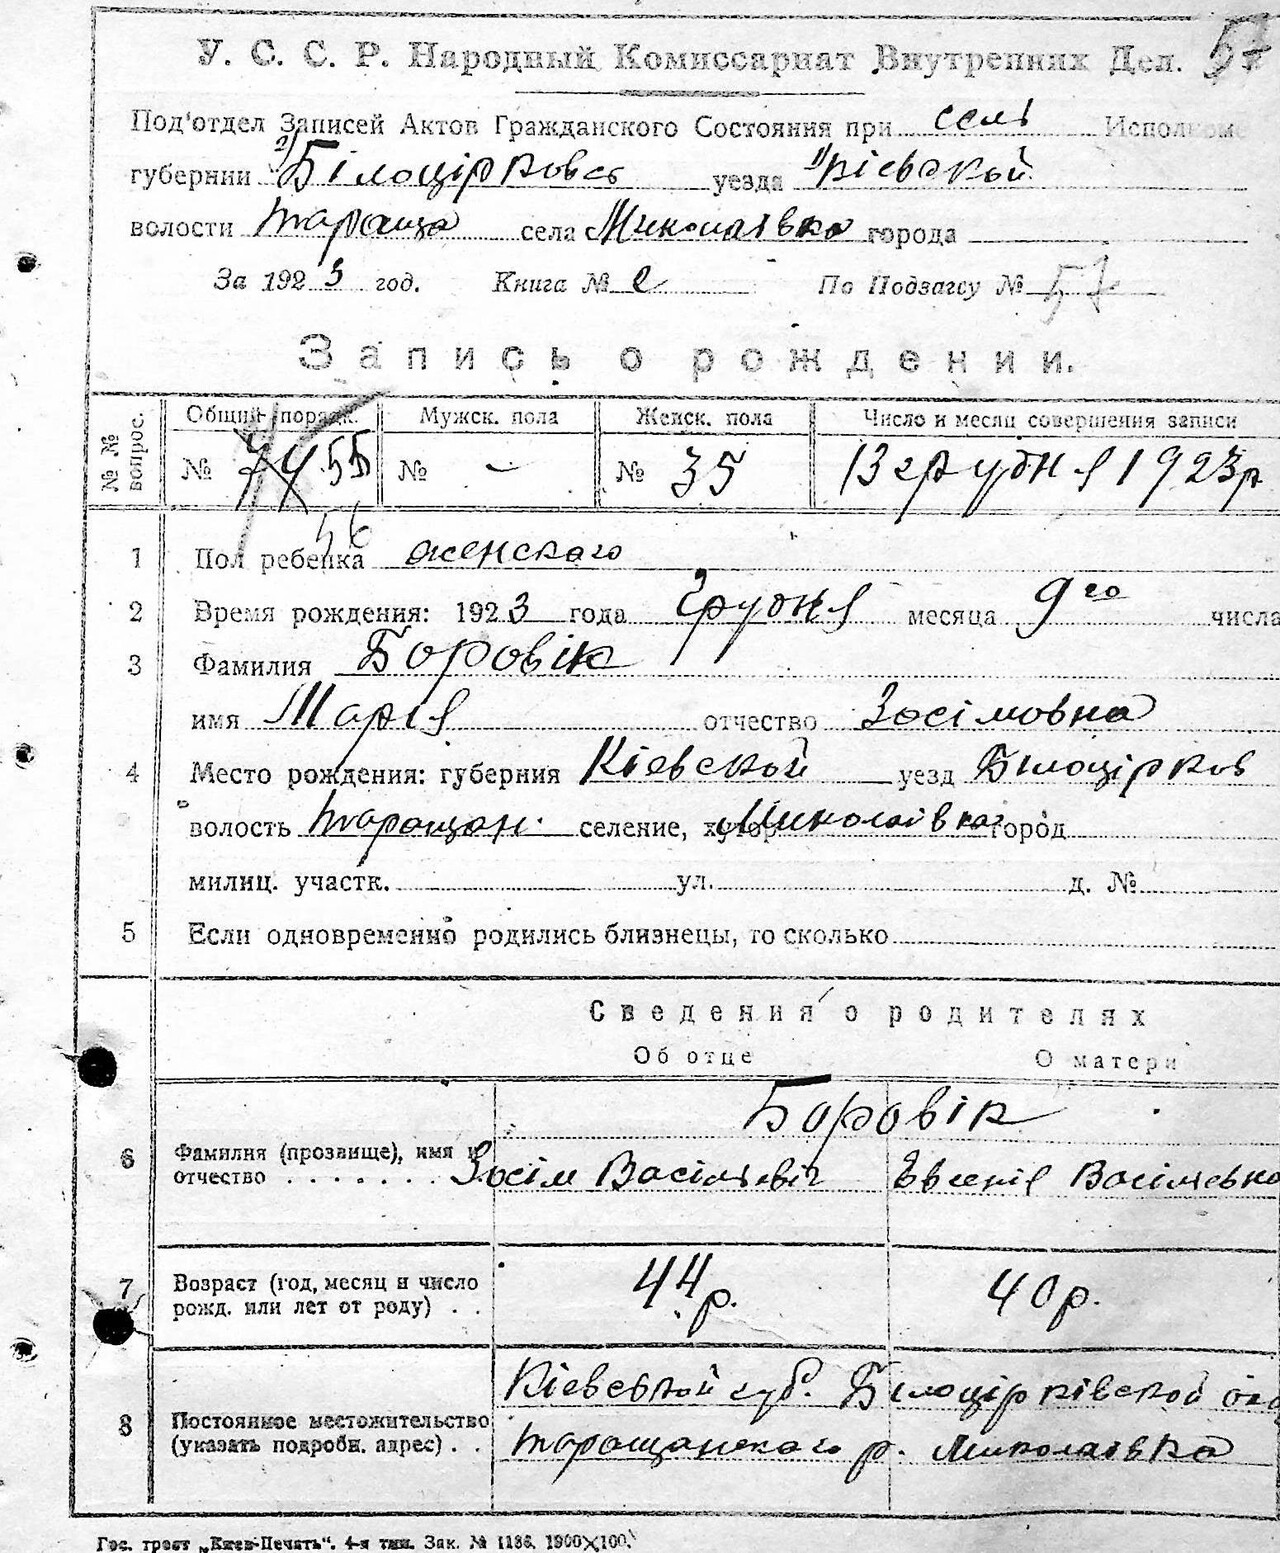 57
У. С. С. Р. Народный Комиссариат Внутренних Дел.
Под'отдел Записей Актов Гражданского Состояния при селі Исполкоме
губернии 2) Білоцірковсь уезда 1) Кіевской
волости Тараща села Миколаівка города
За 1923 год. Книга № 2 По Подзагсу № 57
Запись о рождении.
№ № вопрос. Общий порядк. Мужск. пола Женск. пола Число и месяц совершения записи
№ 74 55 № — № 35 13 грудня 1923р
56
1 Пол ребенка женскаго
2 Время рождения: 1923 года Грудня месяца 9го числа
3 Фамилия Боровік
имя Марія отчество Зосімовна
4 Место рождения: губерния Кіевской уезд Білоцірков
волость Таращан. селение, хутор Миколаівка город
милиц. участк. ул. д. №
5 Если одновременно родились близнецы, то сколько
Сведения о родителях
Об отце О матери
Боровік
6 Фамилия (прозвище), имя и
отчество . . . . . . . Зосім Васільевіч Евгенія Васільевна
7 Возраст (год, месяц и число
рожд. или лет от роду) . . 44 р. 40 р.
Кіевськой губ. Білоцірківской
8 Постоянное местожительство
(указать подробн. адрес) . . Таращанскаго р. Миколаівка
Гос. трест „Киев-Печать". 4-я тип. Зак. № 1186. 1900×100.